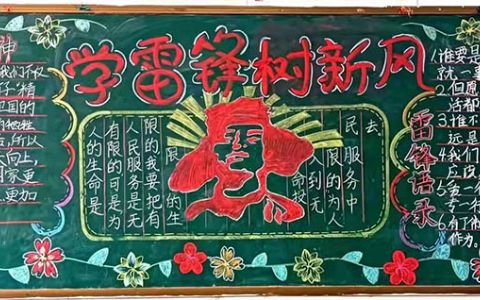 学雷锋树新风
神
我们不仅
子"精
卫国的
的牺牲
所以
向上,
更
更加
人的生命是
有限的可是为
人民服务是无
限的我要把有
限的生
命投
入到无
限的为人
民服务中
去
雷锋语录
1.谁要是
就一事
2.但愿
活都
3.谁不
远是
4.我们
应
5.
专一
6.有了
作为。